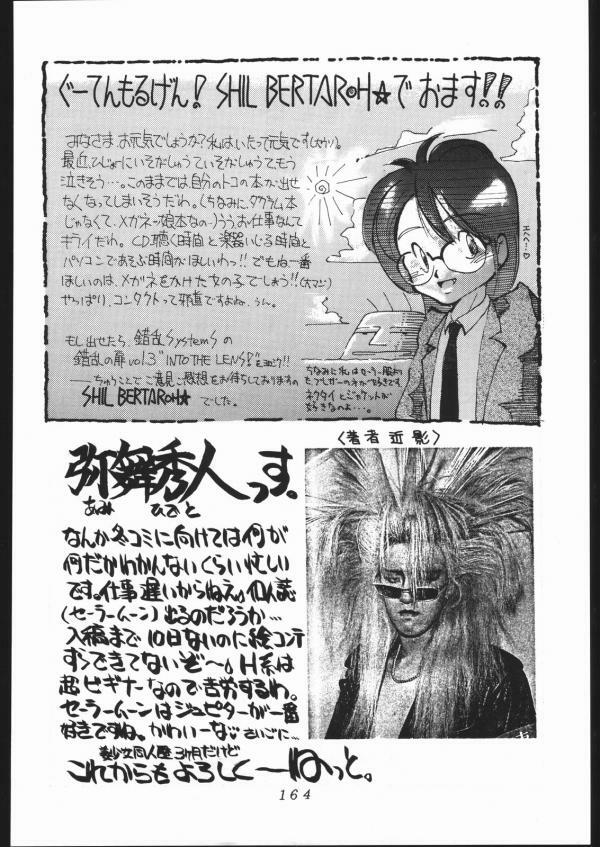 ぐーてんもるげん! SHIL BERTAROH☆で おます!!
みなさま お元気でしょうか?私はいたって元気です(大ウソ)。
最近、ひじょーにいそがしゅうていそがしゅうて、もう
泣きそう…。このままでは自分のトコの本が出せ
なくなってしまいそうだわ。(ちなみに、タカラム本
じゃなくて、メガネっ娘本なの〜)うう、お仕事なんて
キライだわ。CD聴く時間と楽器いじる時間と
パソコンであそぶ時間がほしいわっ!!でもね一番
ほしいのは、メガネをかけた女の子でしょう!!(大マジ)
やっぱり、コンタクトって邪道ですよね、うん。
エヘヘ…♡
もし出せたら、錯乱SystemSの
錯乱の扉 vol.3 "INTO THE LENS"をヨロピク!!
——ちゅうことでご意見ご感想をお待ちしておりますの
SHIL BERTAROH☆ でした。
ちなみに私はセーラー服より
もブレザーの方が好きです
ネクタイとジャケットが
好きなのよ…。
弥舞秀人っす。
あみ ひでと
〈著者近影〉
なんか冬コミに向けては何が
何だかわかんないくらい忙しい
です。仕事遅いからねえ。個人誌
(セーラームーン)出るのだろうか…
入稿まで10日ないのに絵コンテ
すらできてないぞ〜。H系は
超ビギナーなので苦労するわ。
セーラームーンはジュピターが一番
好きですね。かわいーな。さいごに…
美少女同人歴3ヶ月だけど
これからもよろしく〜ねっと。
164